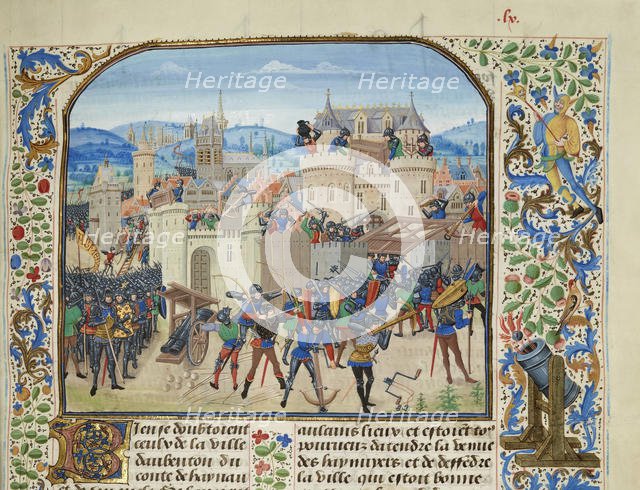 lx.
Heritage Heritage
Heritage Heritage Heritage
Heritage Heritage
Bien se doubtoient
ceulx de la ville
daubenton du
conte de haynau
lieux et estoiet
pourueuz datendre la venue
des haynuyers et de deffedre
la ville qui estoit bonne